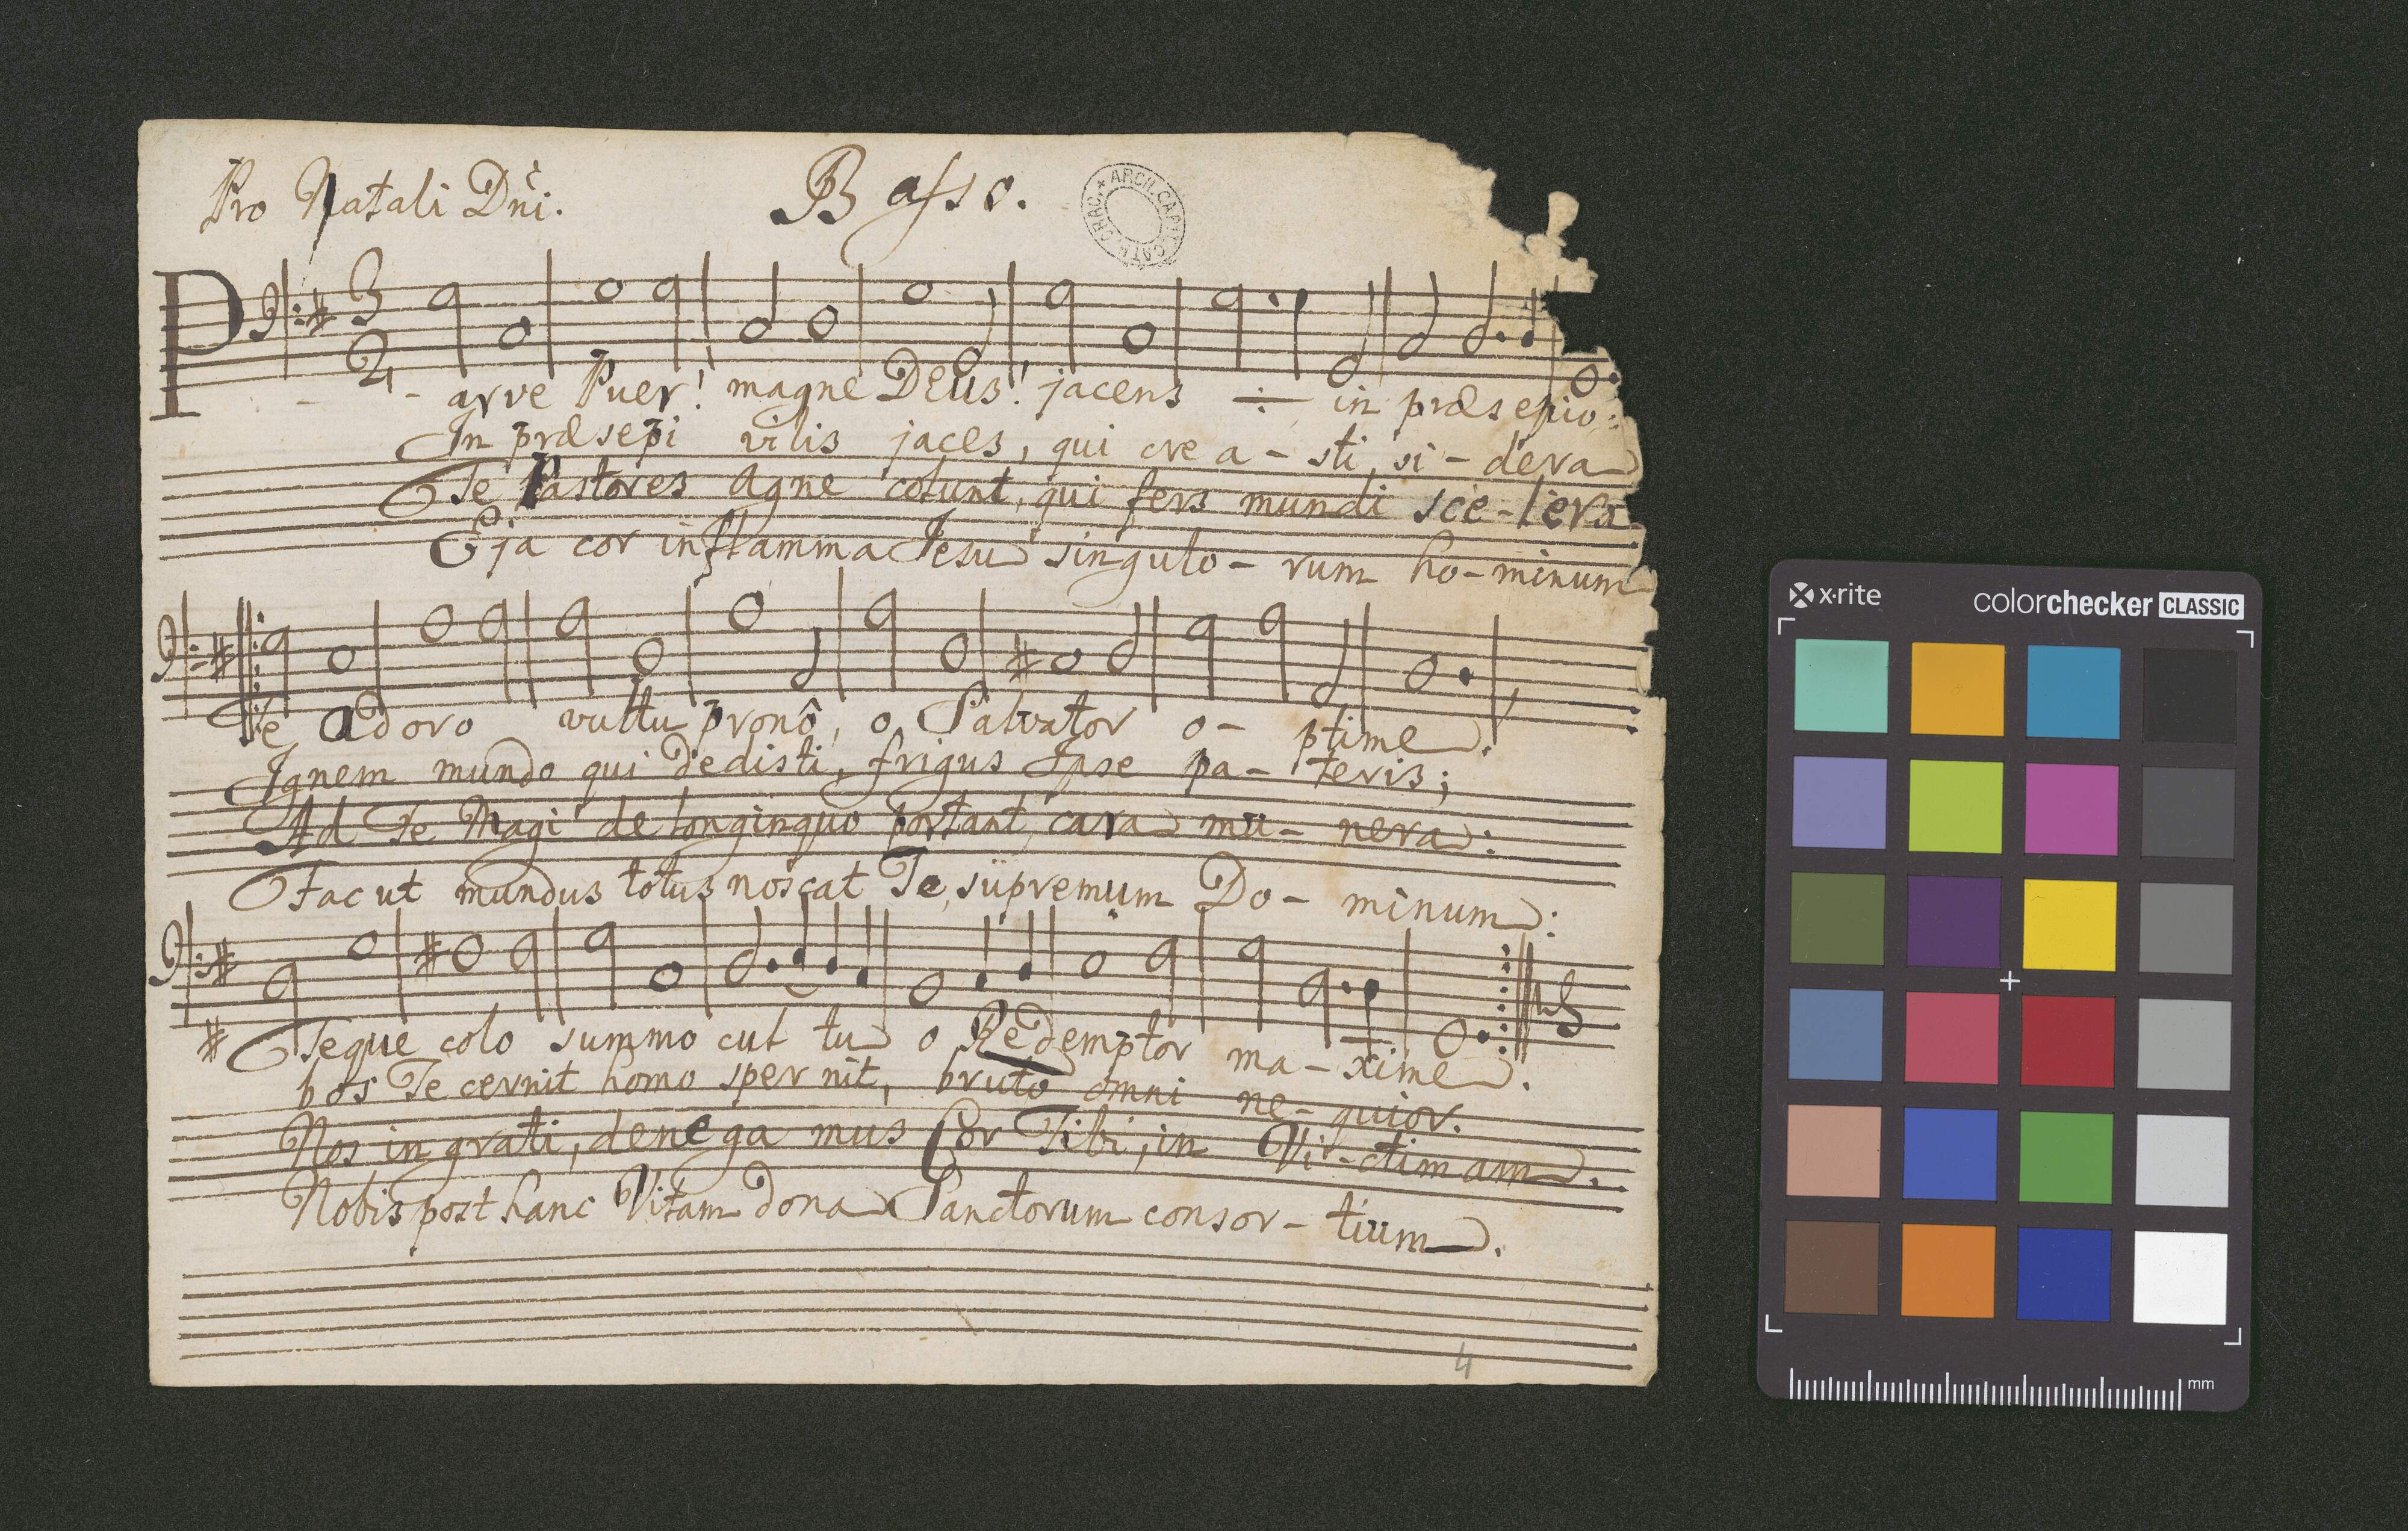 Pro Natali Dñi. Basso.
ARCH. CAPIT. CATH. CRAC.
3
2
P-arve Puer! magne Deus! jacens ÷ in præsepio:
In præsepi vilis jaces, qui cre a-sti, si-dera
Te Pastores Agne colunt, qui fers mundi sce-lera
Eja cor inflamma Jesu singulo-rum ho-minum
Te adoro vultu pronô, o Salvator o-ptime.
Ignem mundo qui dedisti, frigus Ipse pa-teris;
Ad Te Magi de longinquo portant, cara mu-nera:
Fac ut mundus totus noscat Te, supremum Do-minum:
Teque colo summo cul tu o Redemptor ma-xime.
bos Te cernit homo sper nit, bruto omni ne-quior.
Nos in grati, denega mus Cor Tibi, in Vi-ctimam.
Nobis post hanc Vitam dona Sanctorum consor-tium.
4
x·rite colorchecker CLASSIC
mm